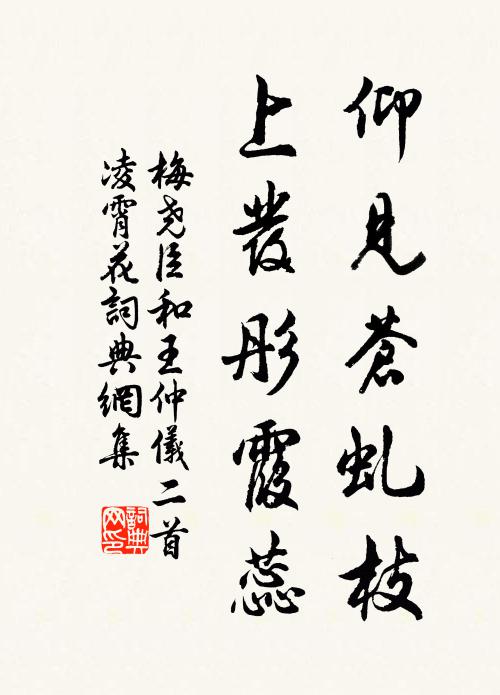 仰見蒼虬枝
上發彤霞蕊
梅尧臣和王仲儀二首
凌霄花詞典網集
詞典
网印